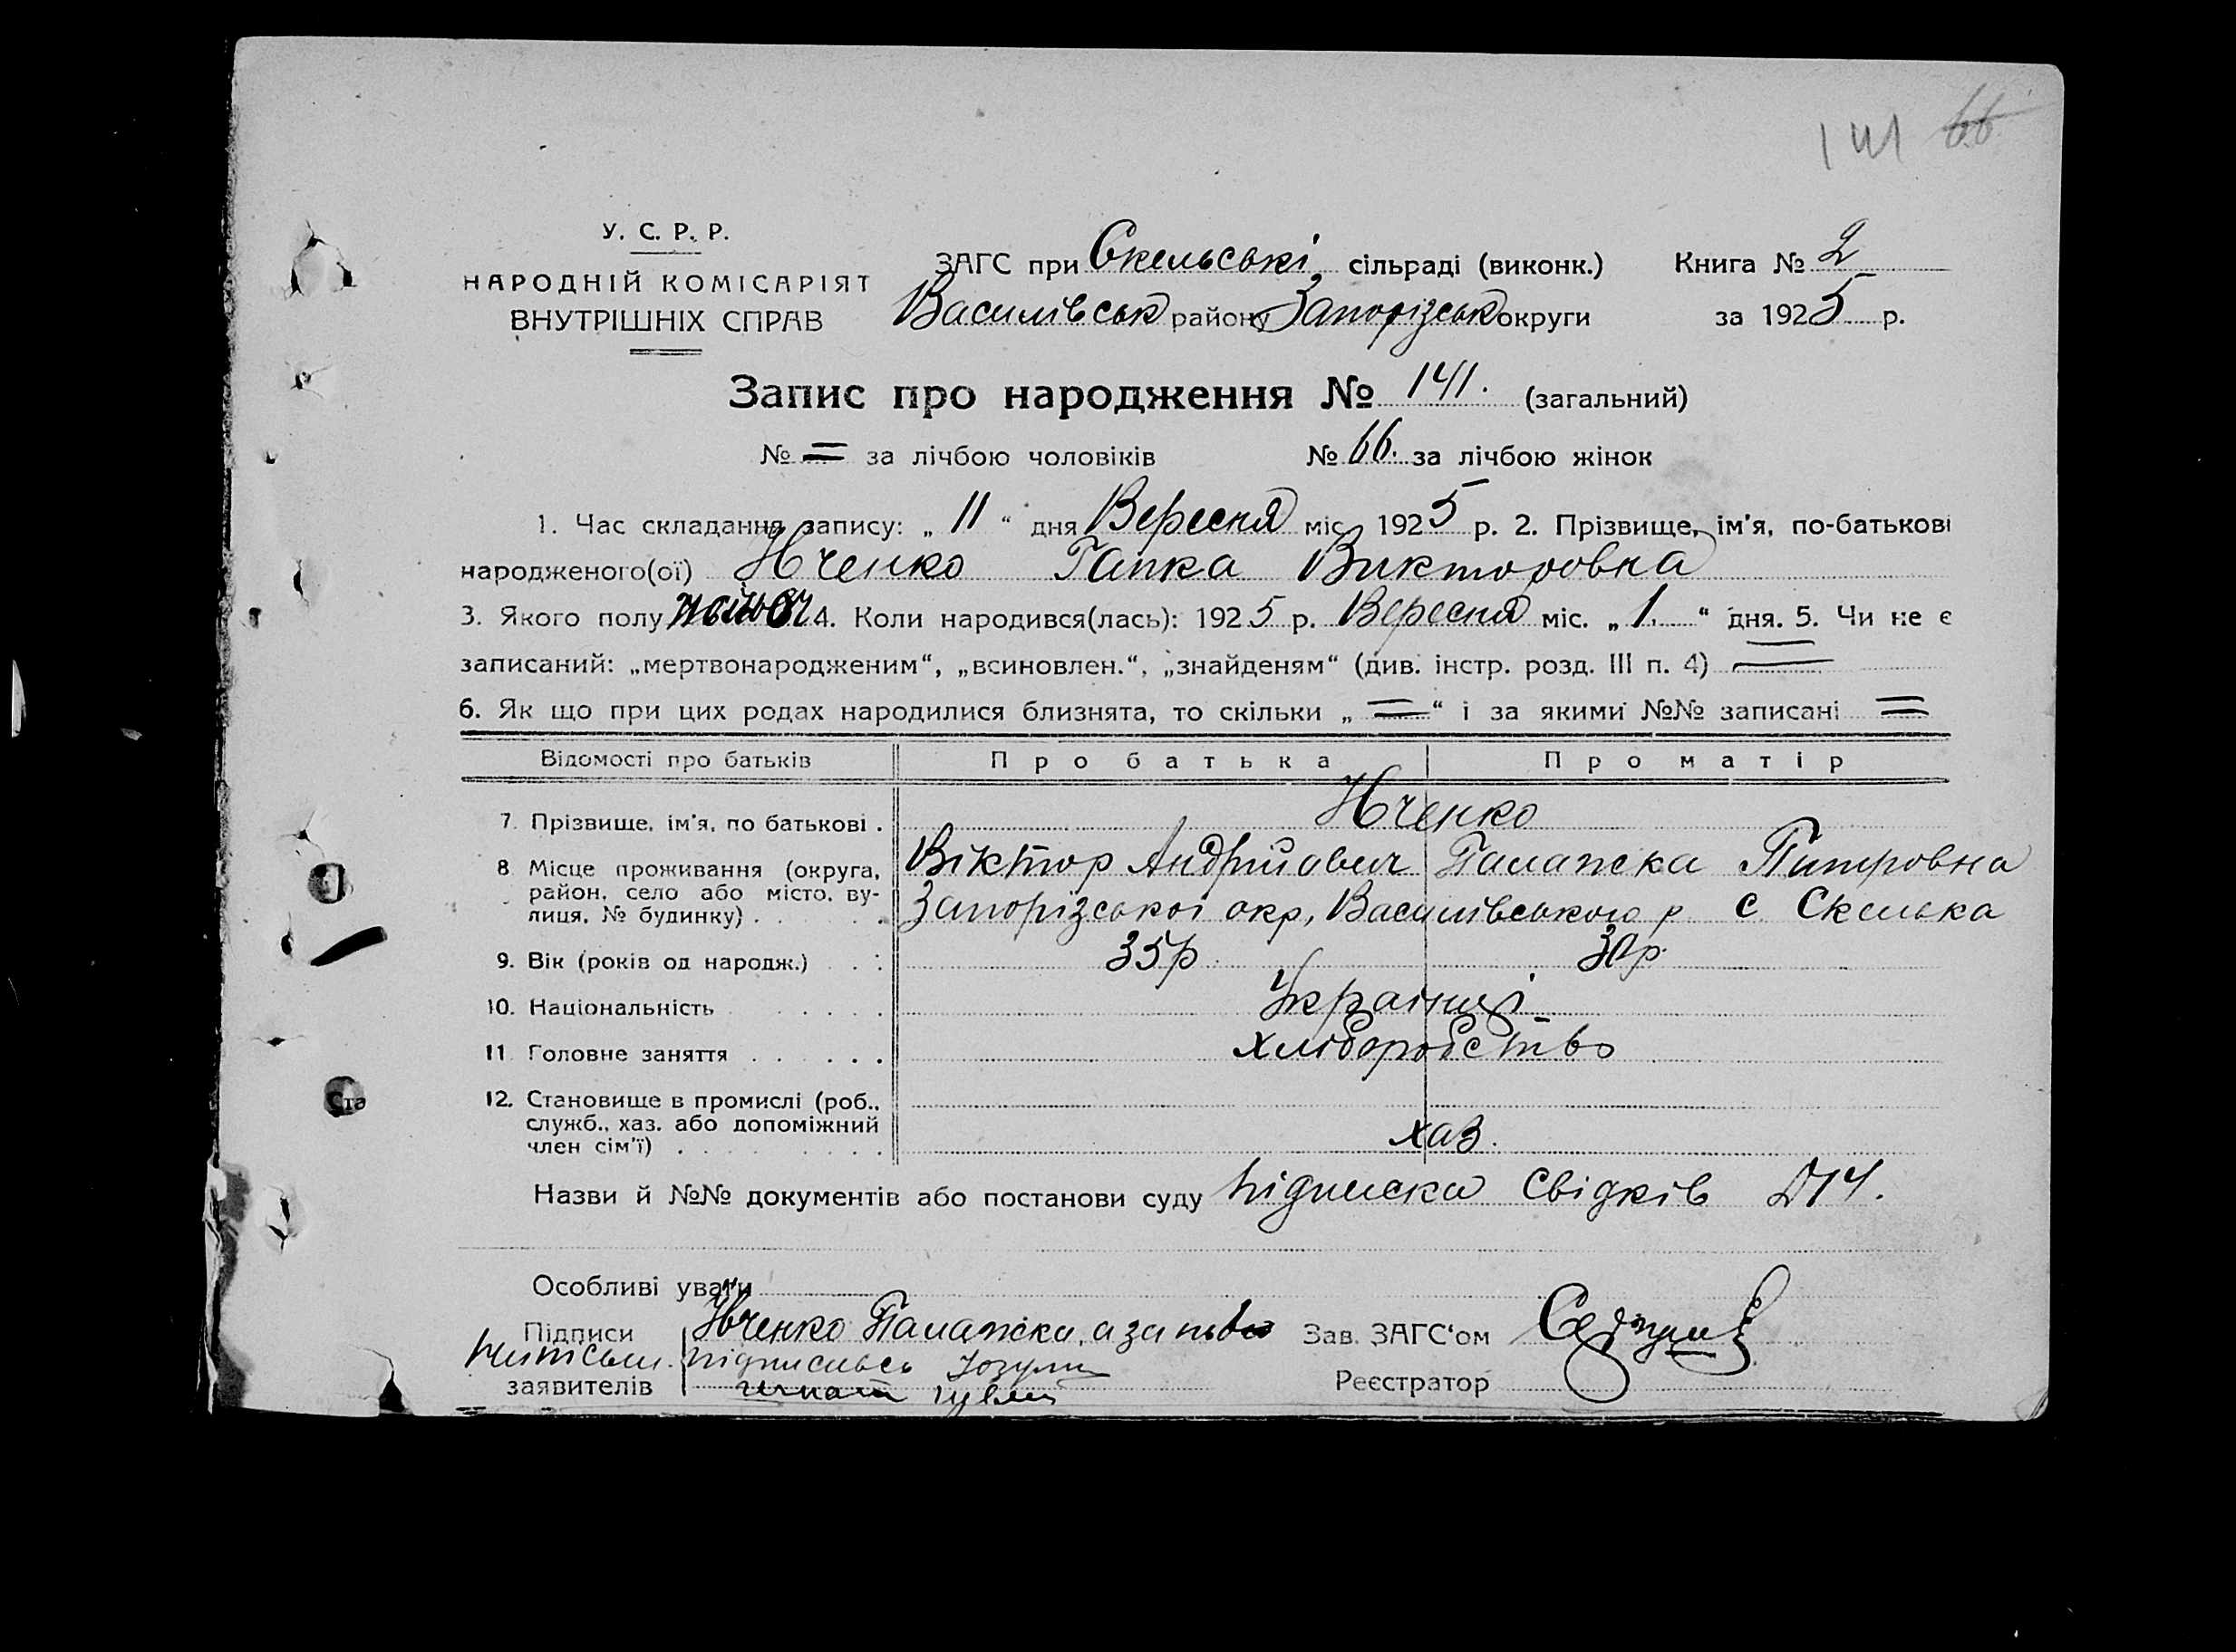 141 66
У. С. Р. Р.
НАРОДНІЙ КОМІСАРІЯТ
ВНУТРІШНІХ СПРАВ
ЗАГС при Скельські сільраді (виконк.) Книга № 2
Василівськ району Запорізськ округи за 1925 р.
Запис про народження № 141. (загальний)
№ = за лічбою чоловіків № 66. за лічбою жінок
1. Час складання запису: „ 11 “ дня Вересня міс. 1925 р. 2. Прізвище, ім'я, по-батькові
народженого(ої) Ивченко Гапка Викторовна
3. Якого полу 4. Коли народився(лась): 1925 р. Вересня міс. „ 1. “ дня. 5. Чи не є
записаний: „мертвонародженим“, „всиновлен.“, „знайденям“ (див. інстр. розд. III п. 4) =
6. Як що при цих родах народилися близнята, то скільки „ = “ і за якими №№ записані =
Відомості про батьків Про батька Про матір
7. Прізвище, ім'я, по батькові . Ивченко
Віктор Андрійович Палажка Питровна
8 Місце проживання (округа,
район, село або місто, ву-
лиця, № будинку) . . . Запорізської окр, Василівського р с Скелька
9. Вік (років од народж.) . . 35р 30р.
10. Національність . . . . . Українці
11 Головне заняття . . . . . хліборобство
12. Становище в промислі (роб.,
служб., хаз. або допоміжний
член сім'ї) . . . . . . . . хаз.
Назви й №№ документів або постанови суду підписка свідків
Особливі уваги
Підписи Ивченко Палажка, а за
підписавсь
заявителів
Зав. ЗАГС'ом
Реєстратор
Ста